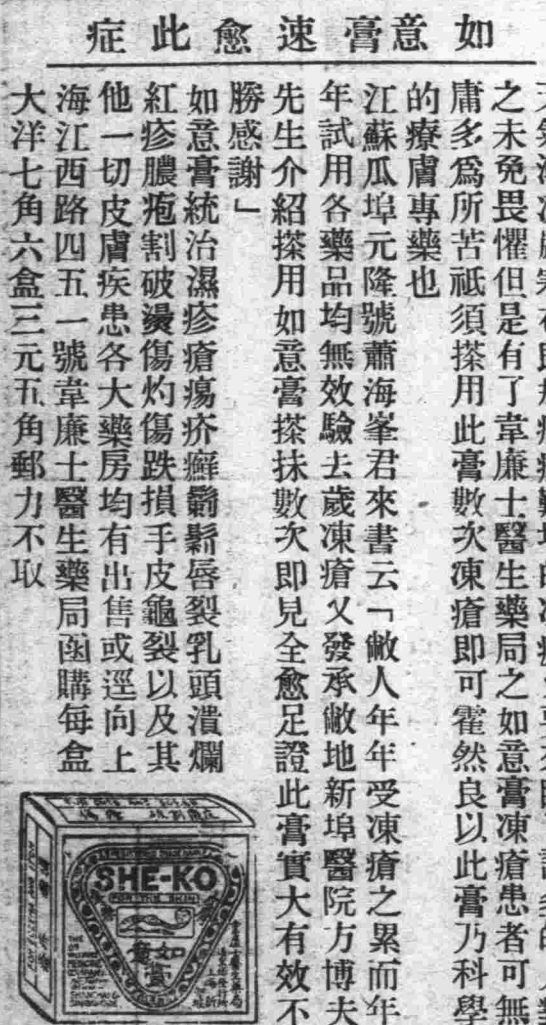 如意膏速愈此症
之未免畏懼但是有了韋廉士醫生藥局之如意膏凍瘡患者可無
庸多爲所苦祗須搽用此膏數次凍瘡即可霍然良以此膏乃科學
的療膚專藥也
江蘇瓜埠元隆號蕭海峯君來書云「敝人年年受凍瘡之累而年
年試用各藥品均無效驗去歲凍瘡又發承敝地新埠醫院方博夫
先生介紹搽用如意膏搽抹數次即見全愈足證此膏實大有效不
勝感謝」
如意膏統治濕疹瘡瘍疥癬鬎鬁唇裂乳頭潰爛
紅疹膿疱割破燙傷灼傷跌損手皮龜裂以及其
他一切皮膚疾患各大藥房均有出售或逕向上
海江西路四五一號韋廉士醫生藥局函購每盒
大洋七角六盒三元五角郵力不取
SHE-KO
FOR THE SKIN
如意膏